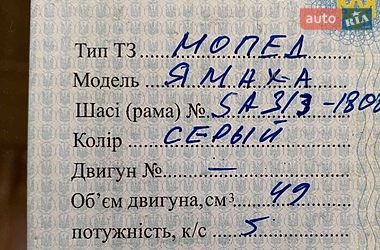 auto RIA
Тип ТЗ МОПЕД
Модель ЯМАХА
Шасі (рама) № SA313-180
Колір СЕРЫЙ
Двигун № —
Об'єм двигуна,см³ 49
потужність, к/с 5